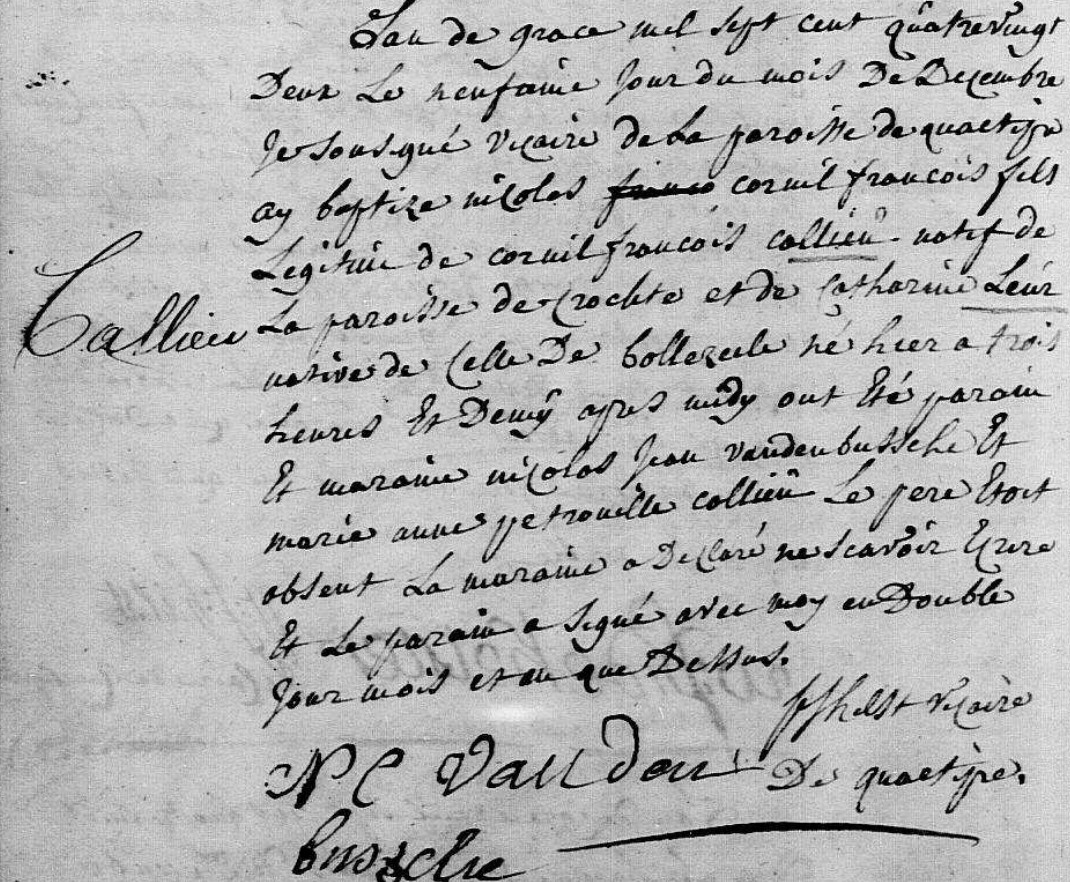 Lan de grace mil sept cent quatrevingt
Deux Le neufaime jour du mois De Decembre
Je sousgné vicaire de La paroisse de quaetipe
ay baptize nicolas cornil francois fils
Legitime de cornil francois collieu natif de
Callieu
La paroisse de Crochte et de Catharine Leur
native de Celle De bollezeele né hier a trois
heures Et Demÿ apres midy ont Eté parain
Et maraine nicolas Jean vandenbussche Et
marie anne petronille collieu Le pere Etoit
absent La maraine a Declaré ne scavoir Ecrire
Et Le parain a signé avec moy en Double
Jour mois et an que Dessus.
vicaire
De quaetipe.
N C Van den
bussche